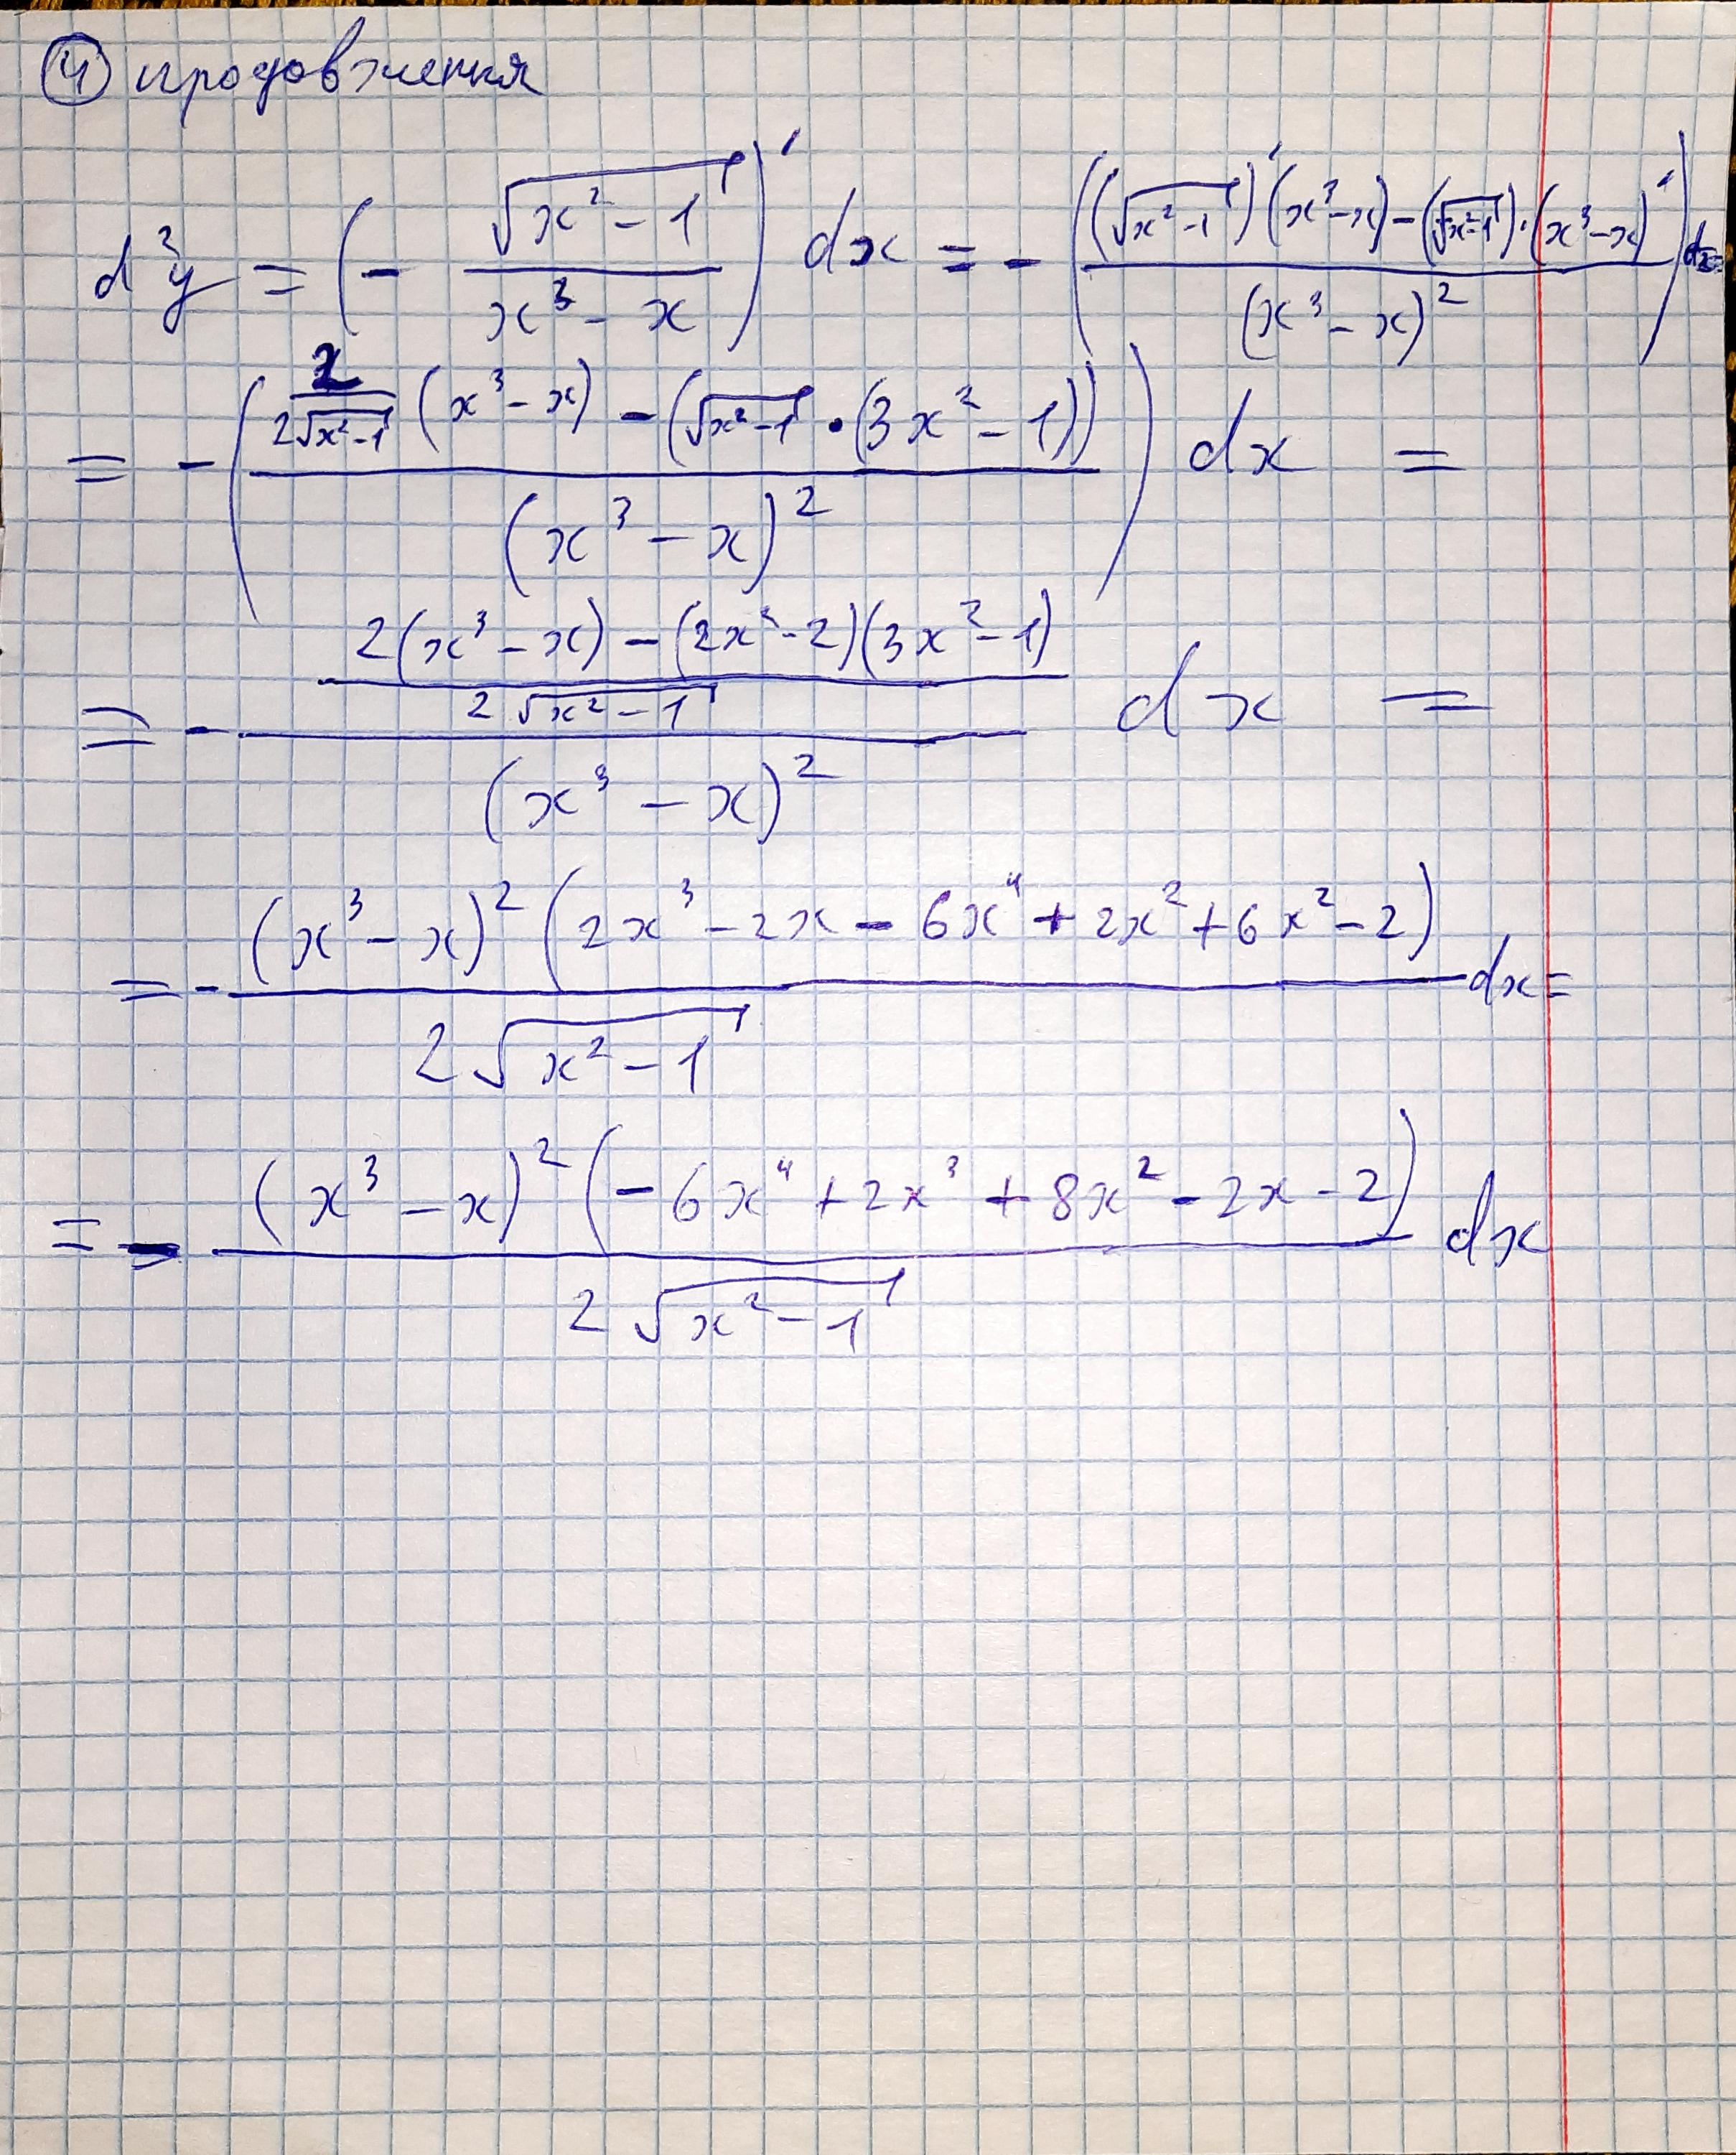 ④ продовження
d²y = (- √(x²-1) / (x³-x))' dx = - (((√(x²-1))' (x³-x) - (√(x²-1)) · (x³-x)') / (x³-x)²) dx =
= - ((2/(2√(x²-1)) (x³-x) - (√(x²-1) · (3x²-1))) / (x³-x)²) dx =
= - ((2(x³-x) - (2x²-2)(3x²-1)) / (2√(x²-1))) / (x³-x)² dx =
= - ((x³-x)² (2x³-2x-6x⁴+2x²+6x²-2)) / (2√(x²-1)) dx =
= - ((x³-x)² (-6x⁴+2x³+8x²-2x-2)) / (2√(x²-1)) dx